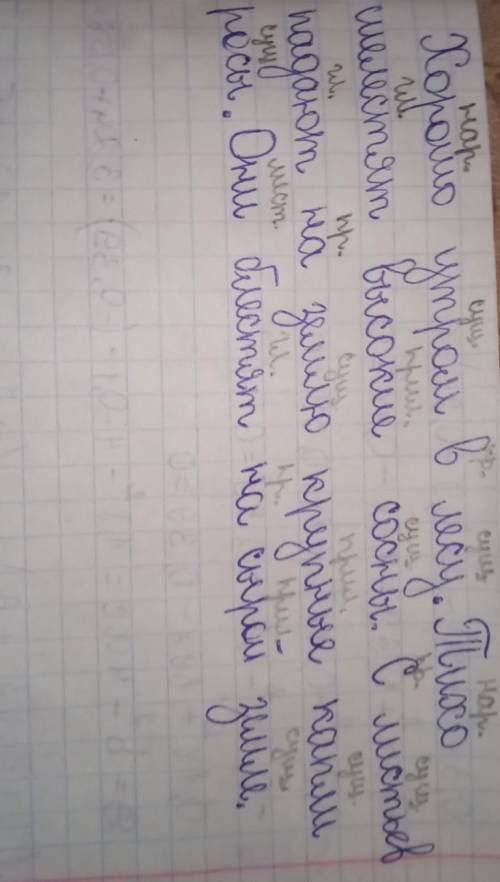 нар. сущ. пр. сущ. нар.
Хорошо утром в лесу. Тихо
гл. прил. сущ пр. сущ
шелестят высокие сосны. С листьев
гл. пр. сущ прил. сущ.
падают на землю крупные капли
сущ мест. гл. пр. прил. сущ.
росы. Они блестят на сырой земле.